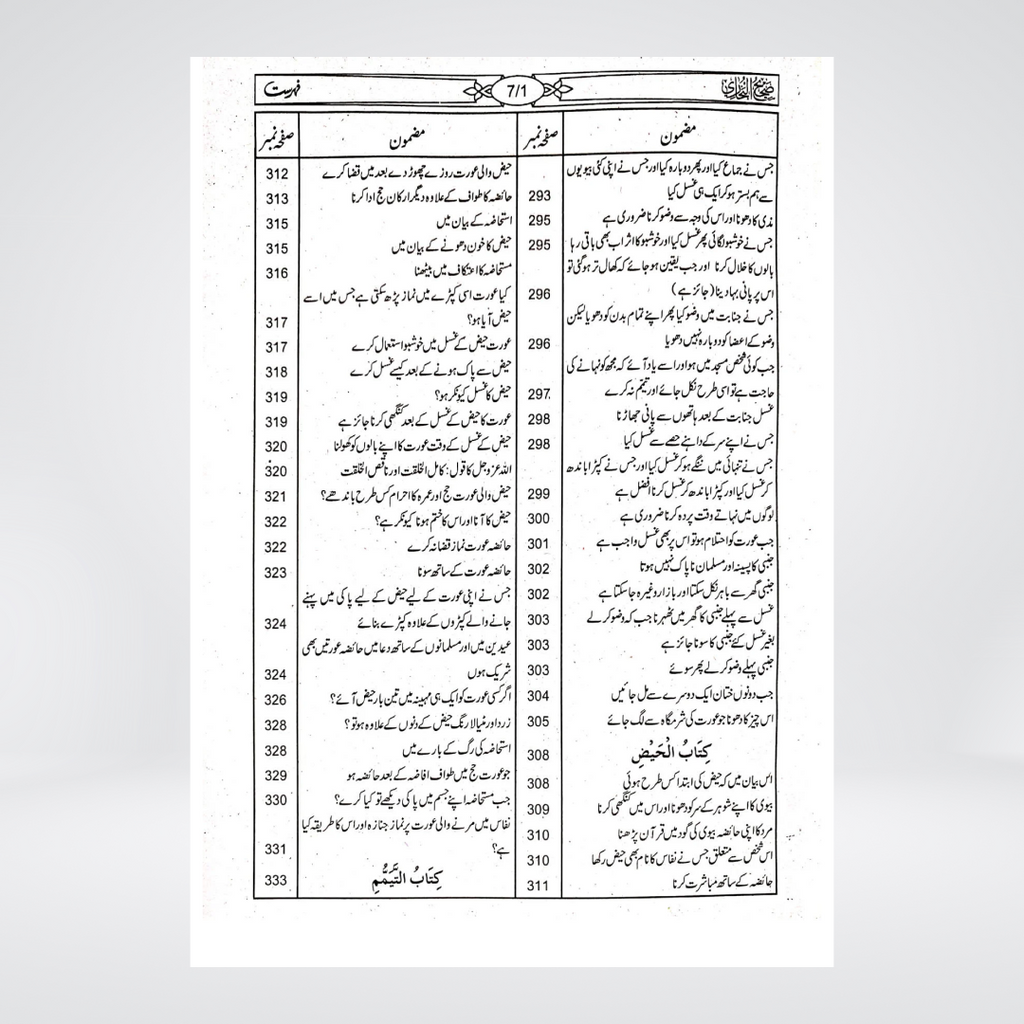 صحیح البخاری
7/1
فہرست
مضمون
صفحہ نمبر
جس نے جماع کیا اور پھر دوبارہ کیا اور جس نے اپنی کئی بیویوں
سے ہم بستر ہو کر ایک ہی غسل کیا 293
مذی کا دھونا اور اس کی وجہ سے وضو کرنا ضروری ہے 295
جس نے خوشبو لگائی پھر غسل کیا اور خوشبو کا اثر اب بھی باقی رہا 295
بالوں کا خلال کرنا اور جب یقین ہو جائے کہ کھال تر ہو گئی تو
اس پر پانی بہا دینا (جائز ہے) 296
جس نے جنابت میں وضو کیا پھر اپنے تمام بدن کو دھویا لیکن
وضو کے اعضا کو دوبارہ نہیں دھویا 296
جب کوئی شخص مسجد میں ہو اور اسے یاد آئے کہ مجھ کو نہانے کی
حاجت ہے تو اسی طرح نکل جائے اور تیمم نہ کرے 297
غسل جنابت کے بعد ہاتھوں سے پانی جھاڑنا 298
جس نے اپنے سر کے داہنے حصے سے غسل کیا 298
جس نے تنہائی میں ننگے ہو کر غسل کیا اور جس نے کپڑا باندھ
کر غسل کیا اور کپڑا باندھ کر غسل کرنا افضل ہے 299
لوگوں میں نہاتے وقت پردہ کرنا ضروری ہے 300
جب عورت کو احتلام ہو تو اس پر بھی غسل واجب ہے 301
جنبی کا پسینہ اور مسلمان ناپاک نہیں ہوتا 302
جنبی گھر سے باہر نکل سکتا اور بازار وغیرہ جا سکتا ہے 302
غسل سے پہلے جنبی کا گھر میں ٹھہرنا جب کہ وضو کر لے 303
بغیر غسل کئے جنبی کا سونا جائز ہے 303
جنبی پہلے وضو کر لے پھر سوئے 303
جب دونوں ختان ایک دوسرے سے مل جائیں 304
اس چیز کا دھونا جو عورت کی شرمگاہ سے لگ جائے 305
كِتَابُ الْحَيْضِ 308
اس بیان میں کہ حیض کی ابتدا کس طرح ہوئی 308
بیوی کا اپنے شوہر کے سر کو دھونا اور اس میں کنگھی کرنا 309
مرد کا اپنی حائضہ بیوی کی گود میں قرآن پڑھنا 310
اس شخص سے متعلق جس نے نفاس کا نام بھی حیض رکھا 310
حائضہ کے ساتھ مباشرت کرنا 311
مضمون
صفحہ نمبر
حیض والی عورت روزے چھوڑ دے بعد میں قضا کرے 312
حائضہ کا طواف کے علاوہ دیگر ارکان حج ادا کرنا 313
استحاضہ کے بیان میں 315
حیض کا خون دھونے کے بیان میں 315
مستحاضہ کا اعتکاف میں بیٹھنا 316
کیا عورت اسی کپڑے میں نماز پڑھ سکتی ہے جس میں اسے
حیض آیا ہو؟ 317
عورت حیض کے غسل میں خوشبو استعمال کرے 317
حیض سے پاک ہونے کے بعد کیسے غسل کرے 318
حیض کا غسل کیونکر ہو؟ 319
عورت کا حیض کے غسل کے بعد کنگھی کرنا جائز ہے 319
حیض کے غسل کے وقت عورت کا اپنے بالوں کو کھولنا 320
اللہ عزوجل کا قول: کامل الخلقت اور ناقص الخلقت 320
حیض والی عورت حج اور عمرہ کا احرام کس طرح باندھے؟ 321
حیض کا آنا اور اس کا ختم ہونا کیونکر ہے؟ 322
حائضہ عورت نماز قضا نہ کرے 322
حائضہ عورت کے ساتھ سونا 323
جس نے اپنی عورت کے لیے حیض کے لیے پاکی میں پہنے
جانے والے کپڑوں کے علاوہ کپڑے بنائے 324
عیدین میں اور مسلمانوں کے ساتھ دعا میں حائضہ عورتیں بھی
شریک ہوں 324
اگر کسی عورت کو ایک ہی مہینہ میں تین بار حیض آئے؟ 326
زرد اور مٹیالا رنگ حیض کے دنوں کے علاوہ ہو تو؟ 328
استحاضہ کی رگ کے بارے میں 328
جو عورت حج میں طواف افاضہ کے بعد حائضہ ہو 329
جب مستحاضہ اپنے جسم میں پاکی دیکھے تو کیا کرے؟ 330
نفاس میں مرنے والی عورت پر نماز جنازہ اور اس کا طریقہ کیا
ہے؟ 331
كِتَابُ التَّيَمُّمِ 333